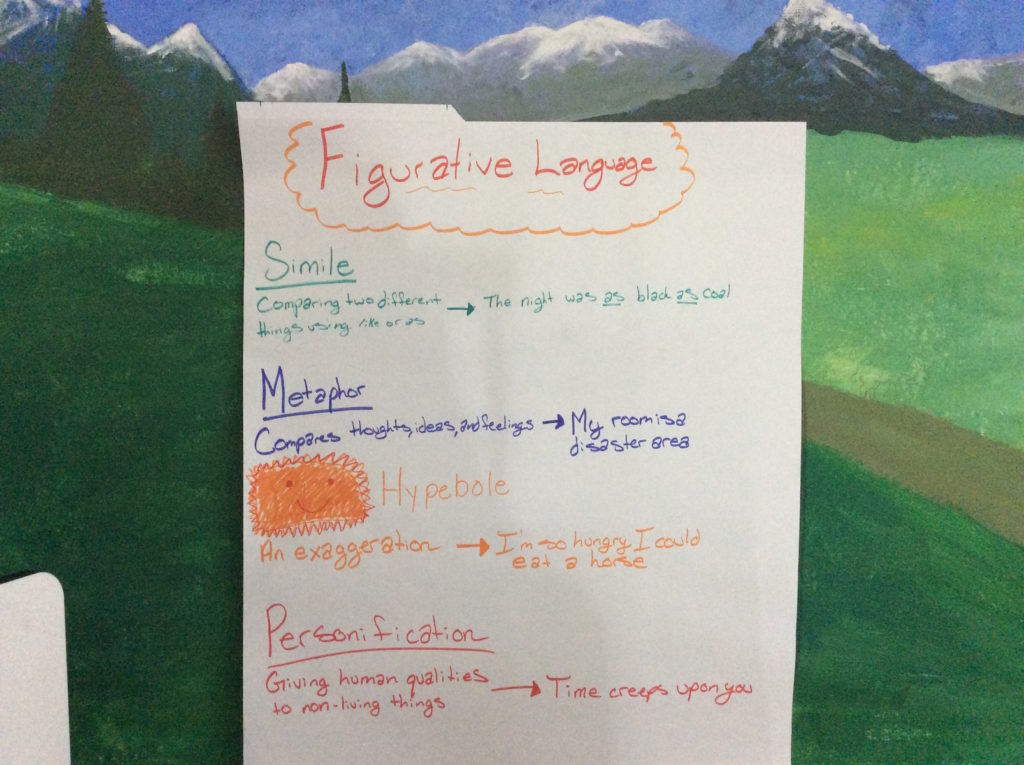 Figurative Language
Simile
Comparing two different → The night was as black as coal
things using like or as
Metaphor
Compares thoughts, ideas, and feelings → My room is a
disaster area
Hypebole
An exaggeration → I'm so hungry I could
eat a horse
Personification
Giving human qualities → Time creeps upon you
to non-living things